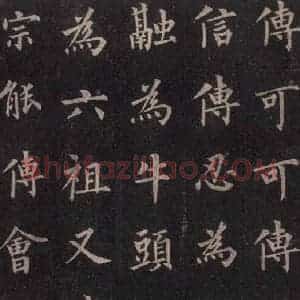 傳可可傳
信傳忍為
融為牛頭
為六祖又
宗能傳會
shufaziliao.com